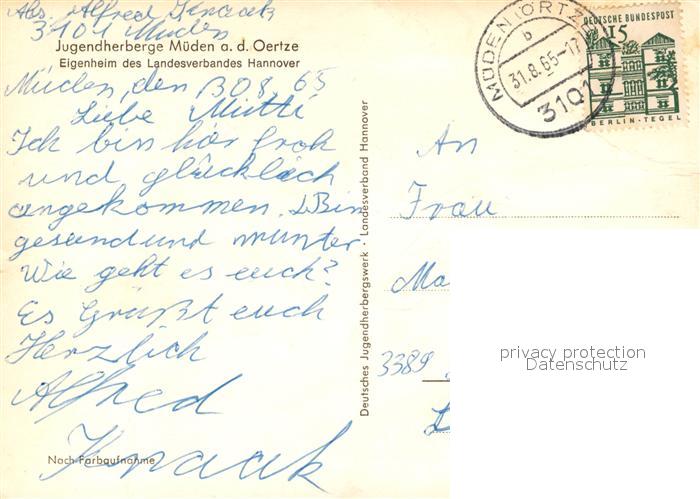 Abs. Alfred Knaak
3101 Müden
Jugendherberge Müden a. d. Oertze
Eigenheim des Landesverbandes Hannover
Müden, den 30 8. 65
Liebe Mutti
Ich bin hör froh
und glücklich
angekommen. Bin
gesund und munter
Wie geht es euch?
Es Grüßt euch
Herzlich
Alfred
Knaak
Nach Farbaufnahme
Deutsches Jugendherbergswerk · Landesverband Hannover
MÜDEN (ÖRTZE)
b
31.8.65-17
3101
DEUTSCHE BUNDESPOST
15
BERLIN-TEGEL
An
Frau
Ma
3389
privacy protection
Datenschutz